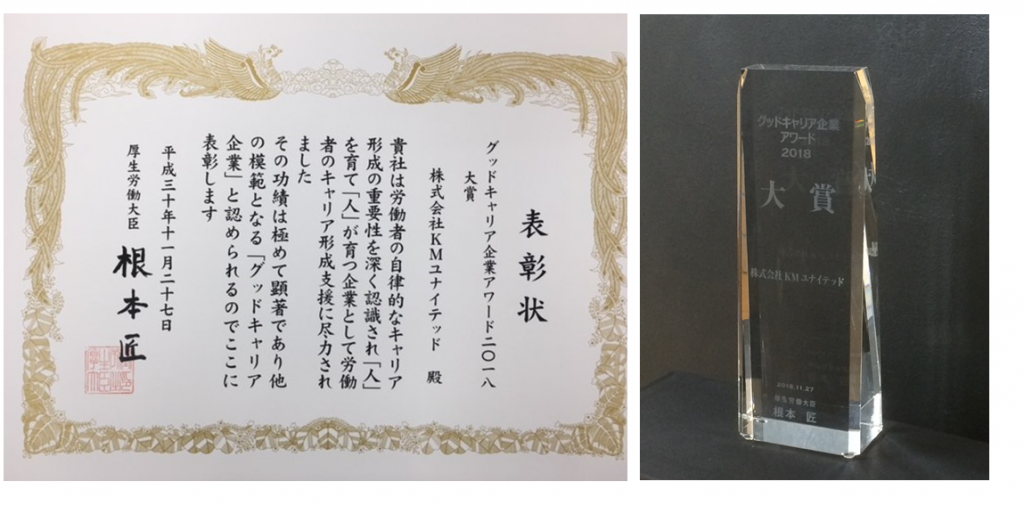 表彰状
グッドキャリア企業アワード二〇一八
大賞
株式会社KMユナイテッド 殿
貴社は労働者の自律的なキャリア
形成の重要性を深く認識され「人」
を育て「人」が育つ企業として労働
者のキャリア形成支援に尽力され
ました
その功績は極めて顕著であり他
の模範となる「グッドキャリア
企業」と認められるのでここに
表彰します
平成三十年十一月二十七日
厚生労働大臣 根本匠
グッドキャリア企業
アワード
2018
大賞
株式会社KMユナイテッド
2018.11.27
厚生労働大臣
根本 匠